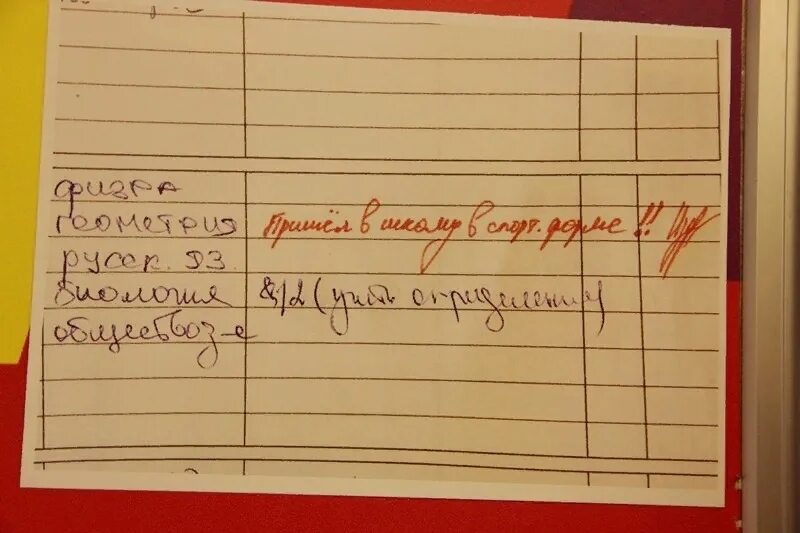 физра
геометрия Пришёл в школу в спорт. форме!!
русск. яз.
биология §12 (учить определения)
обществоз-е